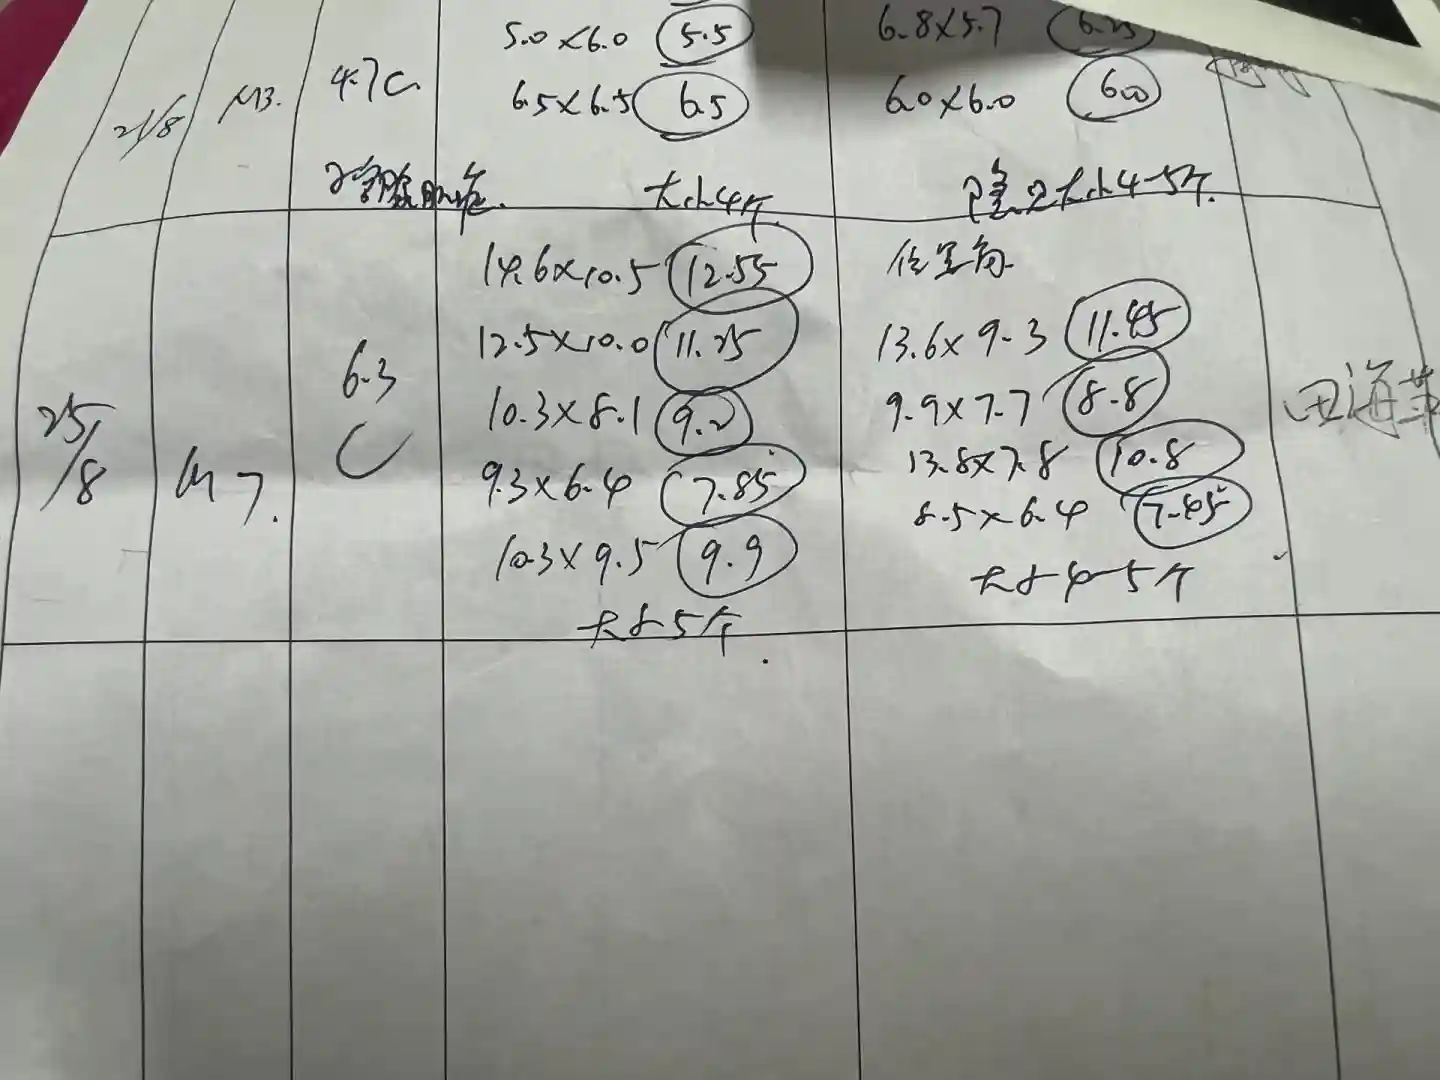 21/8 M3. 4.7C
5.0×6.0 5.5
6.5×6.5 6.5
大小4个
6.8×5.7 6.25
6.0×6.0 6.0
隐见大小4-5个.
25/8 M7. 6.3 C
14.6×10.5 12.55
12.5×10.0 11.25
10.3×8.1 9.2
9.3×6.4 7.85
10.3×9.5 9.9
大小5个.
位置高
13.6×9.3 11.45
9.9×7.7 8.8
13.8×7.8 10.8
8.5×6.4 7.45
大小4-5个
田海